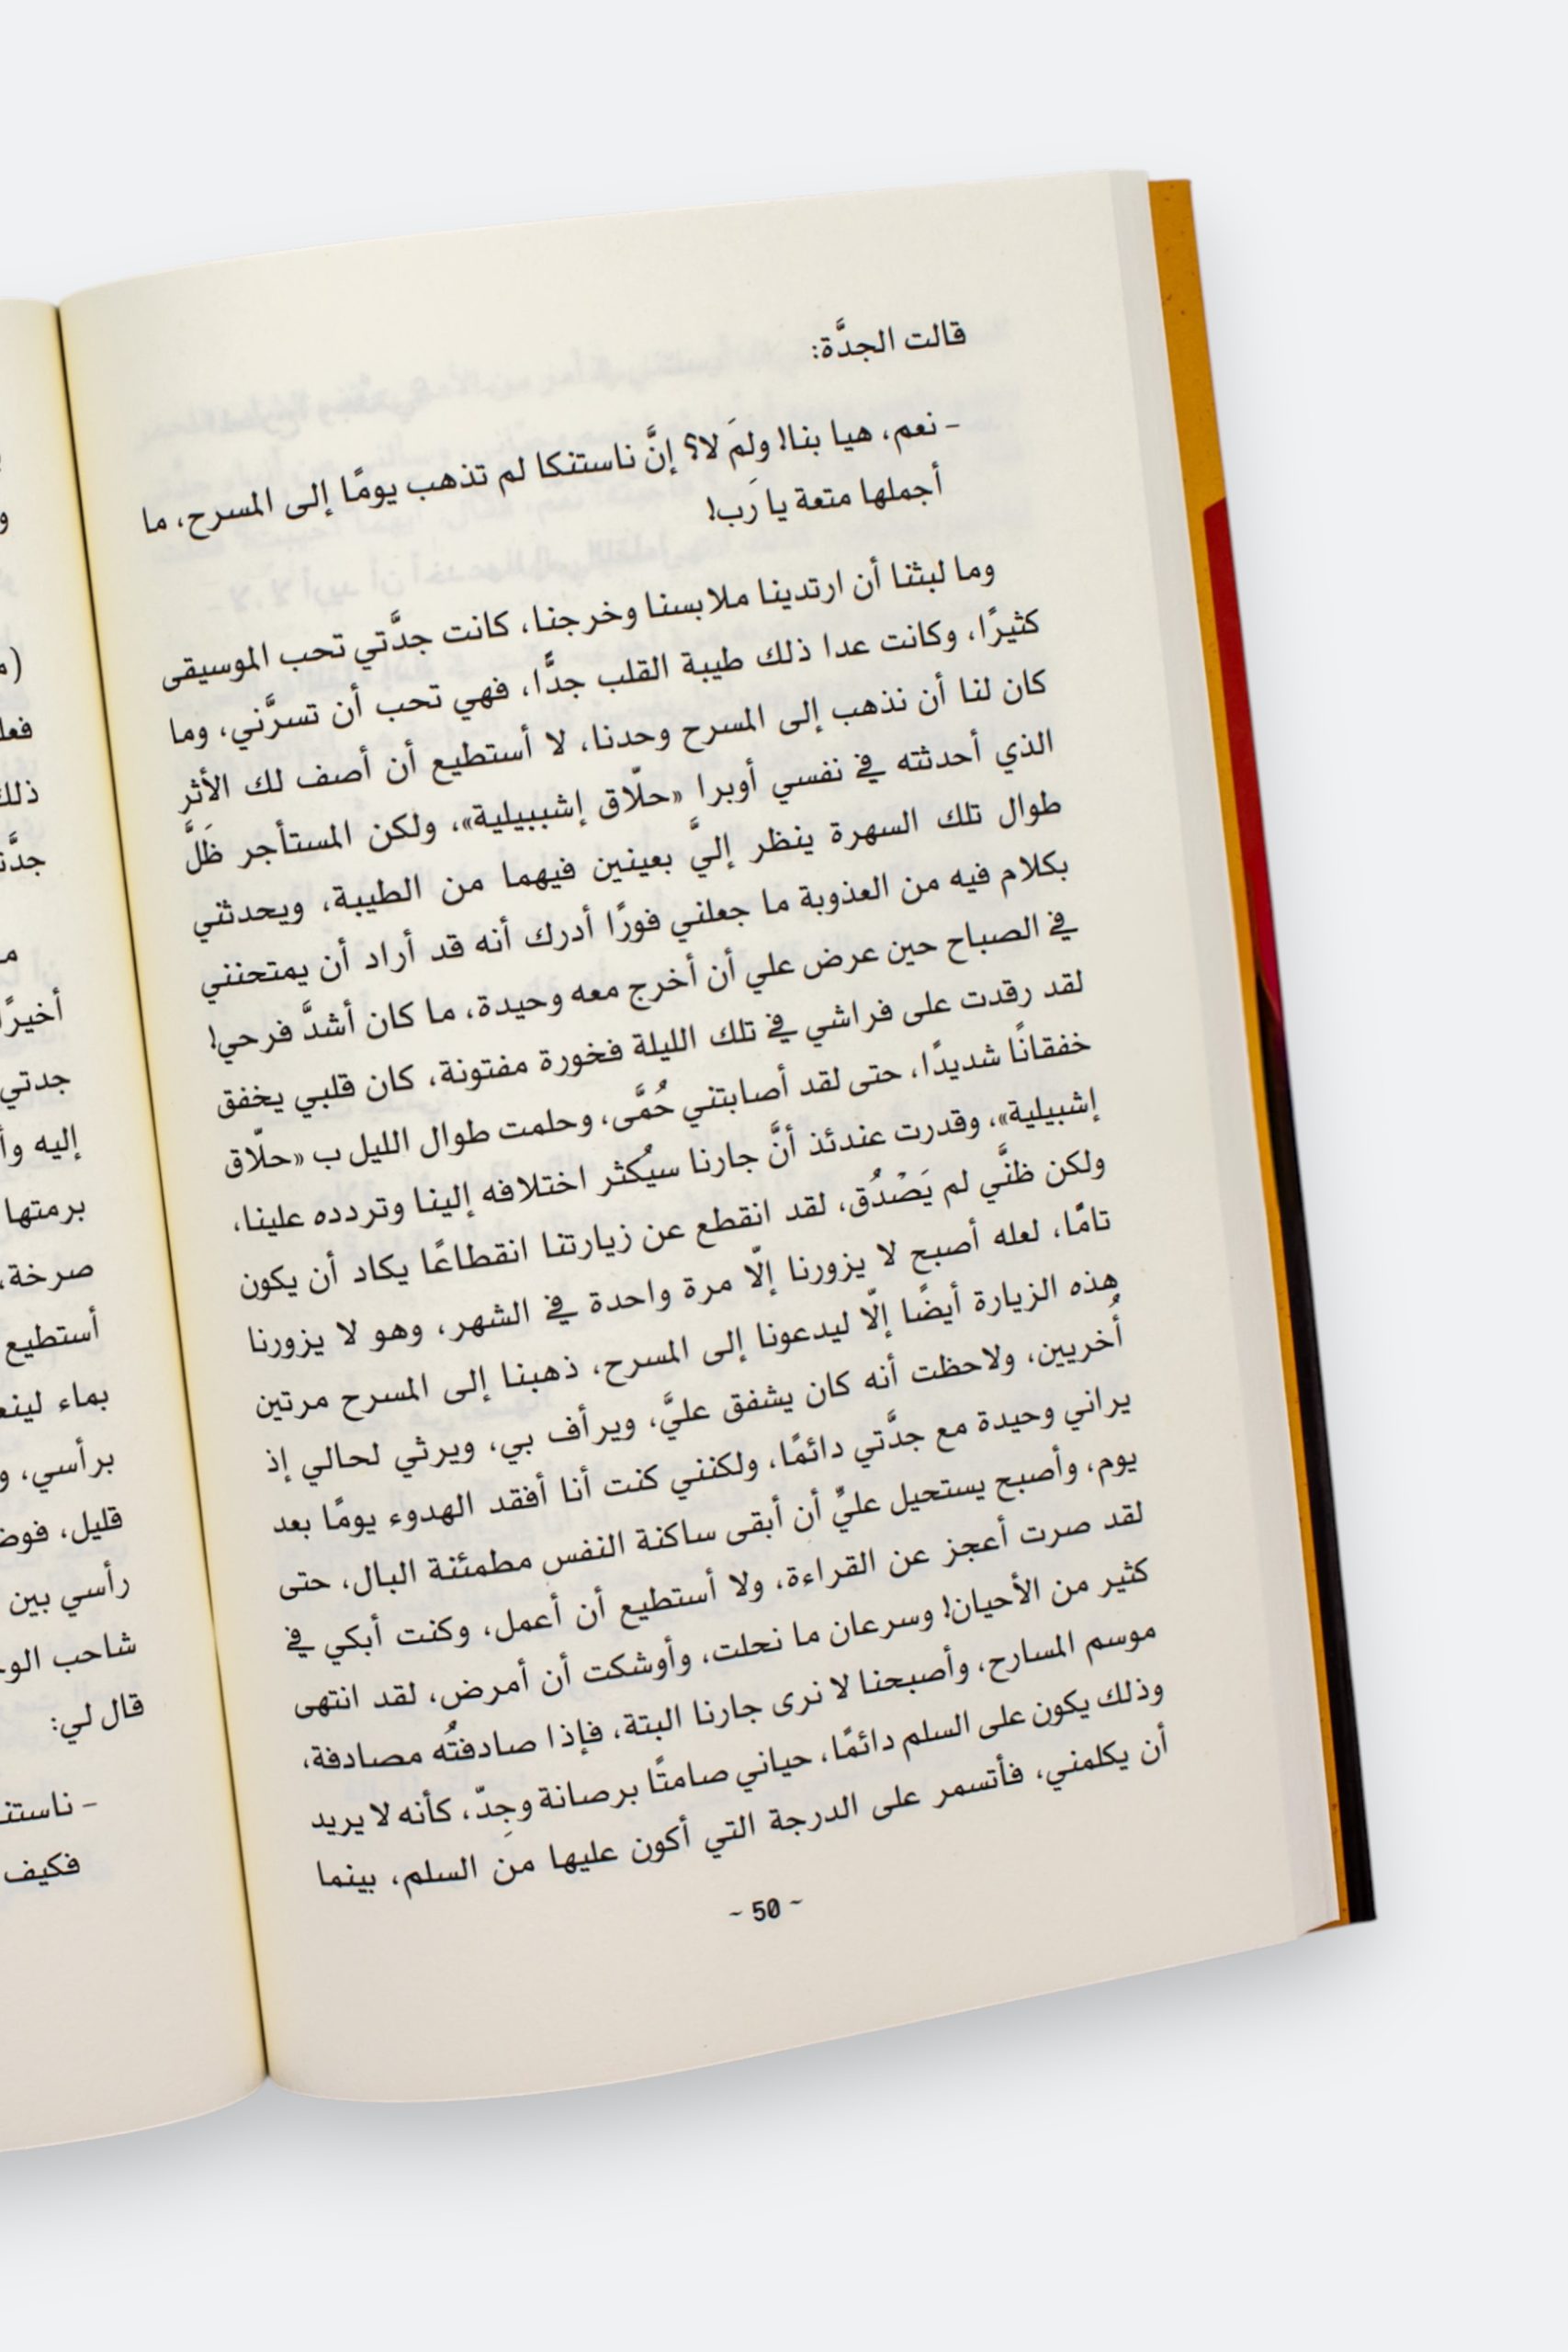 قالت الجدَّة:
- نعم، هيا بنا! ولمَ لا؟ إنَّ ناستنكا لم تذهب يومًا إلى المسرح، ما
أجملها متعة يا رَب!
وما لبثنا أن ارتدينا ملابسنا وخرجنا، كانت جدَّتي تحب الموسيقى
كثيرًا، وكانت عدا ذلك طيبة القلب جدًّا، فهي تحب أن تسرَّني، وما
كان لنا أن نذهب إلى المسرح وحدنا، لا أستطيع أن أصف لك الأثر
الذي أحدثته في نفسي أوبرا «حلّاق إشببيلية»، ولكن المستأجر ظَلَّ
طوال تلك السهرة ينظر إليَّ بعينين فيهما من الطيبة، ويحدثني
بكلام فيه من العذوبة ما جعلني فورًا أدرك أنه قد أراد أن يمتحنني
في الصباح حين عرض علي أن أخرج معه وحيدة، ما كان أشدَّ فرحي!
لقد رقدت على فراشي في تلك الليلة فخورة مفتونة، كان قلبي يخفق
خفقانًا شديدًا، حتى لقد أصابتني حُمَّى، وحلمت طوال الليل ب «حلّاق
إشبيلية»، وقدرت عندئذ أنَّ جارنا سيُكثر اختلافه إلينا وتردده علينا،
ولكن ظنَّي لم يَصْدُق، لقد انقطع عن زيارتنا انقطاعًا يكاد أن يكون
تامًّا، لعله أصبح لا يزورنا إلّا مرة واحدة في الشهر، وهو لا يزورنا
هذه الزيارة أيضًا إلّا ليدعونا إلى المسرح، ذهبنا إلى المسرح مرتين
أُخريين، ولاحظت أنه كان يشفق عليَّ، ويرأف بي، ويرثي لحالي إذ
يراني وحيدة مع جدَّتي دائمًا، ولكنني كنت أنا أفقد الهدوء يومًا بعد
يوم، وأصبح يستحيل عليَّ أن أبقى ساكنة النفس مطمئنة البال، حتى
لقد صرت أعجز عن القراءة، ولا أستطيع أن أعمل، وكنت أبكي في
كثير من الأحيان! وسرعان ما نحلت، وأوشكت أن أمرض، لقد انتهى
موسم المسارح، وأصبحنا لا نرى جارنا البتة، فإذا صادفتُه مصادفة،
وذلك يكون على السلم دائمًا، حياني صامتًا برصانة وجِدّ، كأنه لا يريد
أن يكلمني، فأتسمر على الدرجة التي أكون عليها من السلم، بينما
~ 50 ~
جدتي
إليه
برمتها
صرخة،
أستطيع
بماء
برأسي،
قليل،
رأسي بين
شاحب
قال لي:
-
فكيف